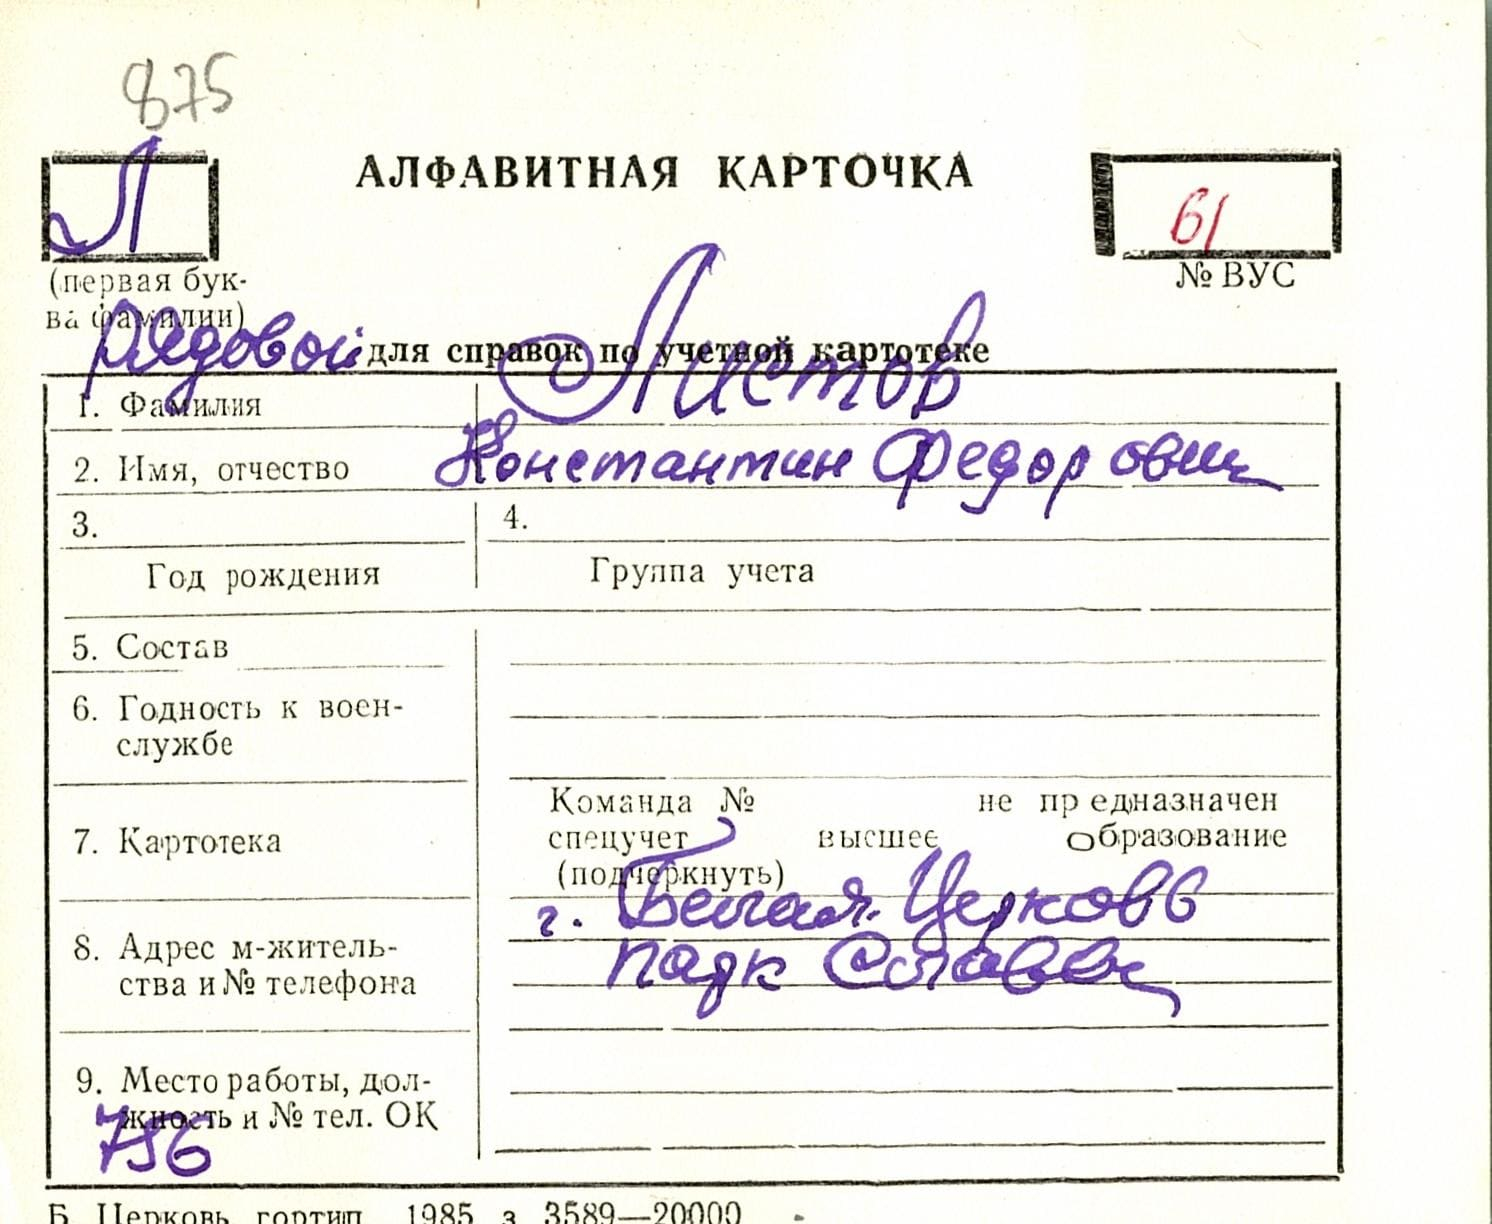 875
Л
АЛФАВИТНАЯ КАРТОЧКА
61
(первая бук-
ва фамилии)
№ ВУС
Рядовой
для справок по учетной картотеке
1. Фамилия Листов
2. Имя, отчество Константин Федорович
3. 4.
Год рождения Группа учета
5. Состав
6. Годность к воен-
службе
7. Картотека
Команда № не предназначен
спецучет высшее образование
(подчеркнуть)
8. Адрес м-житель-
ства и № телефона
г. Белая Церковь
парк Славы
9. Место работы, дол-
жность и № тел. ОК
756
Б. Церковь, гортип. 1985 з. 3589—20000